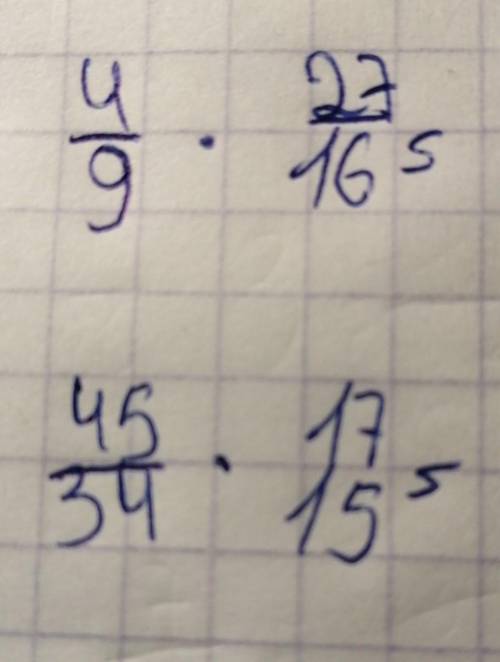 4/9 · 27/16 s
45/34 · 17/15 s